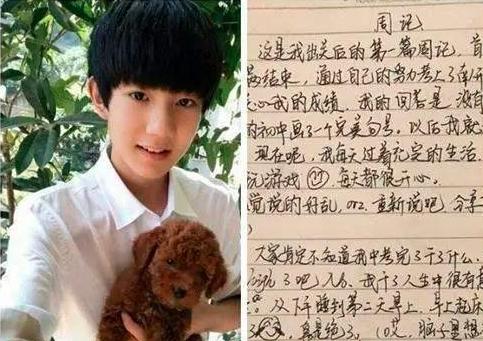 周记
这是我出关后的第一篇周记,首
结束,通过自己的努力考上了
心我的成绩,我的回答是,没有
的初中画了一个完美句号。以后我
现在呢,我每天过着充实的生活,
玩游戏,每天都很开心。
觉说的好乱,orz,重新说吧,分享
大家肯定不知道我中考完了干了什么,
了吧 我干了人生中很有
从下午睡到第二天早上,早上起床
真是绝了。